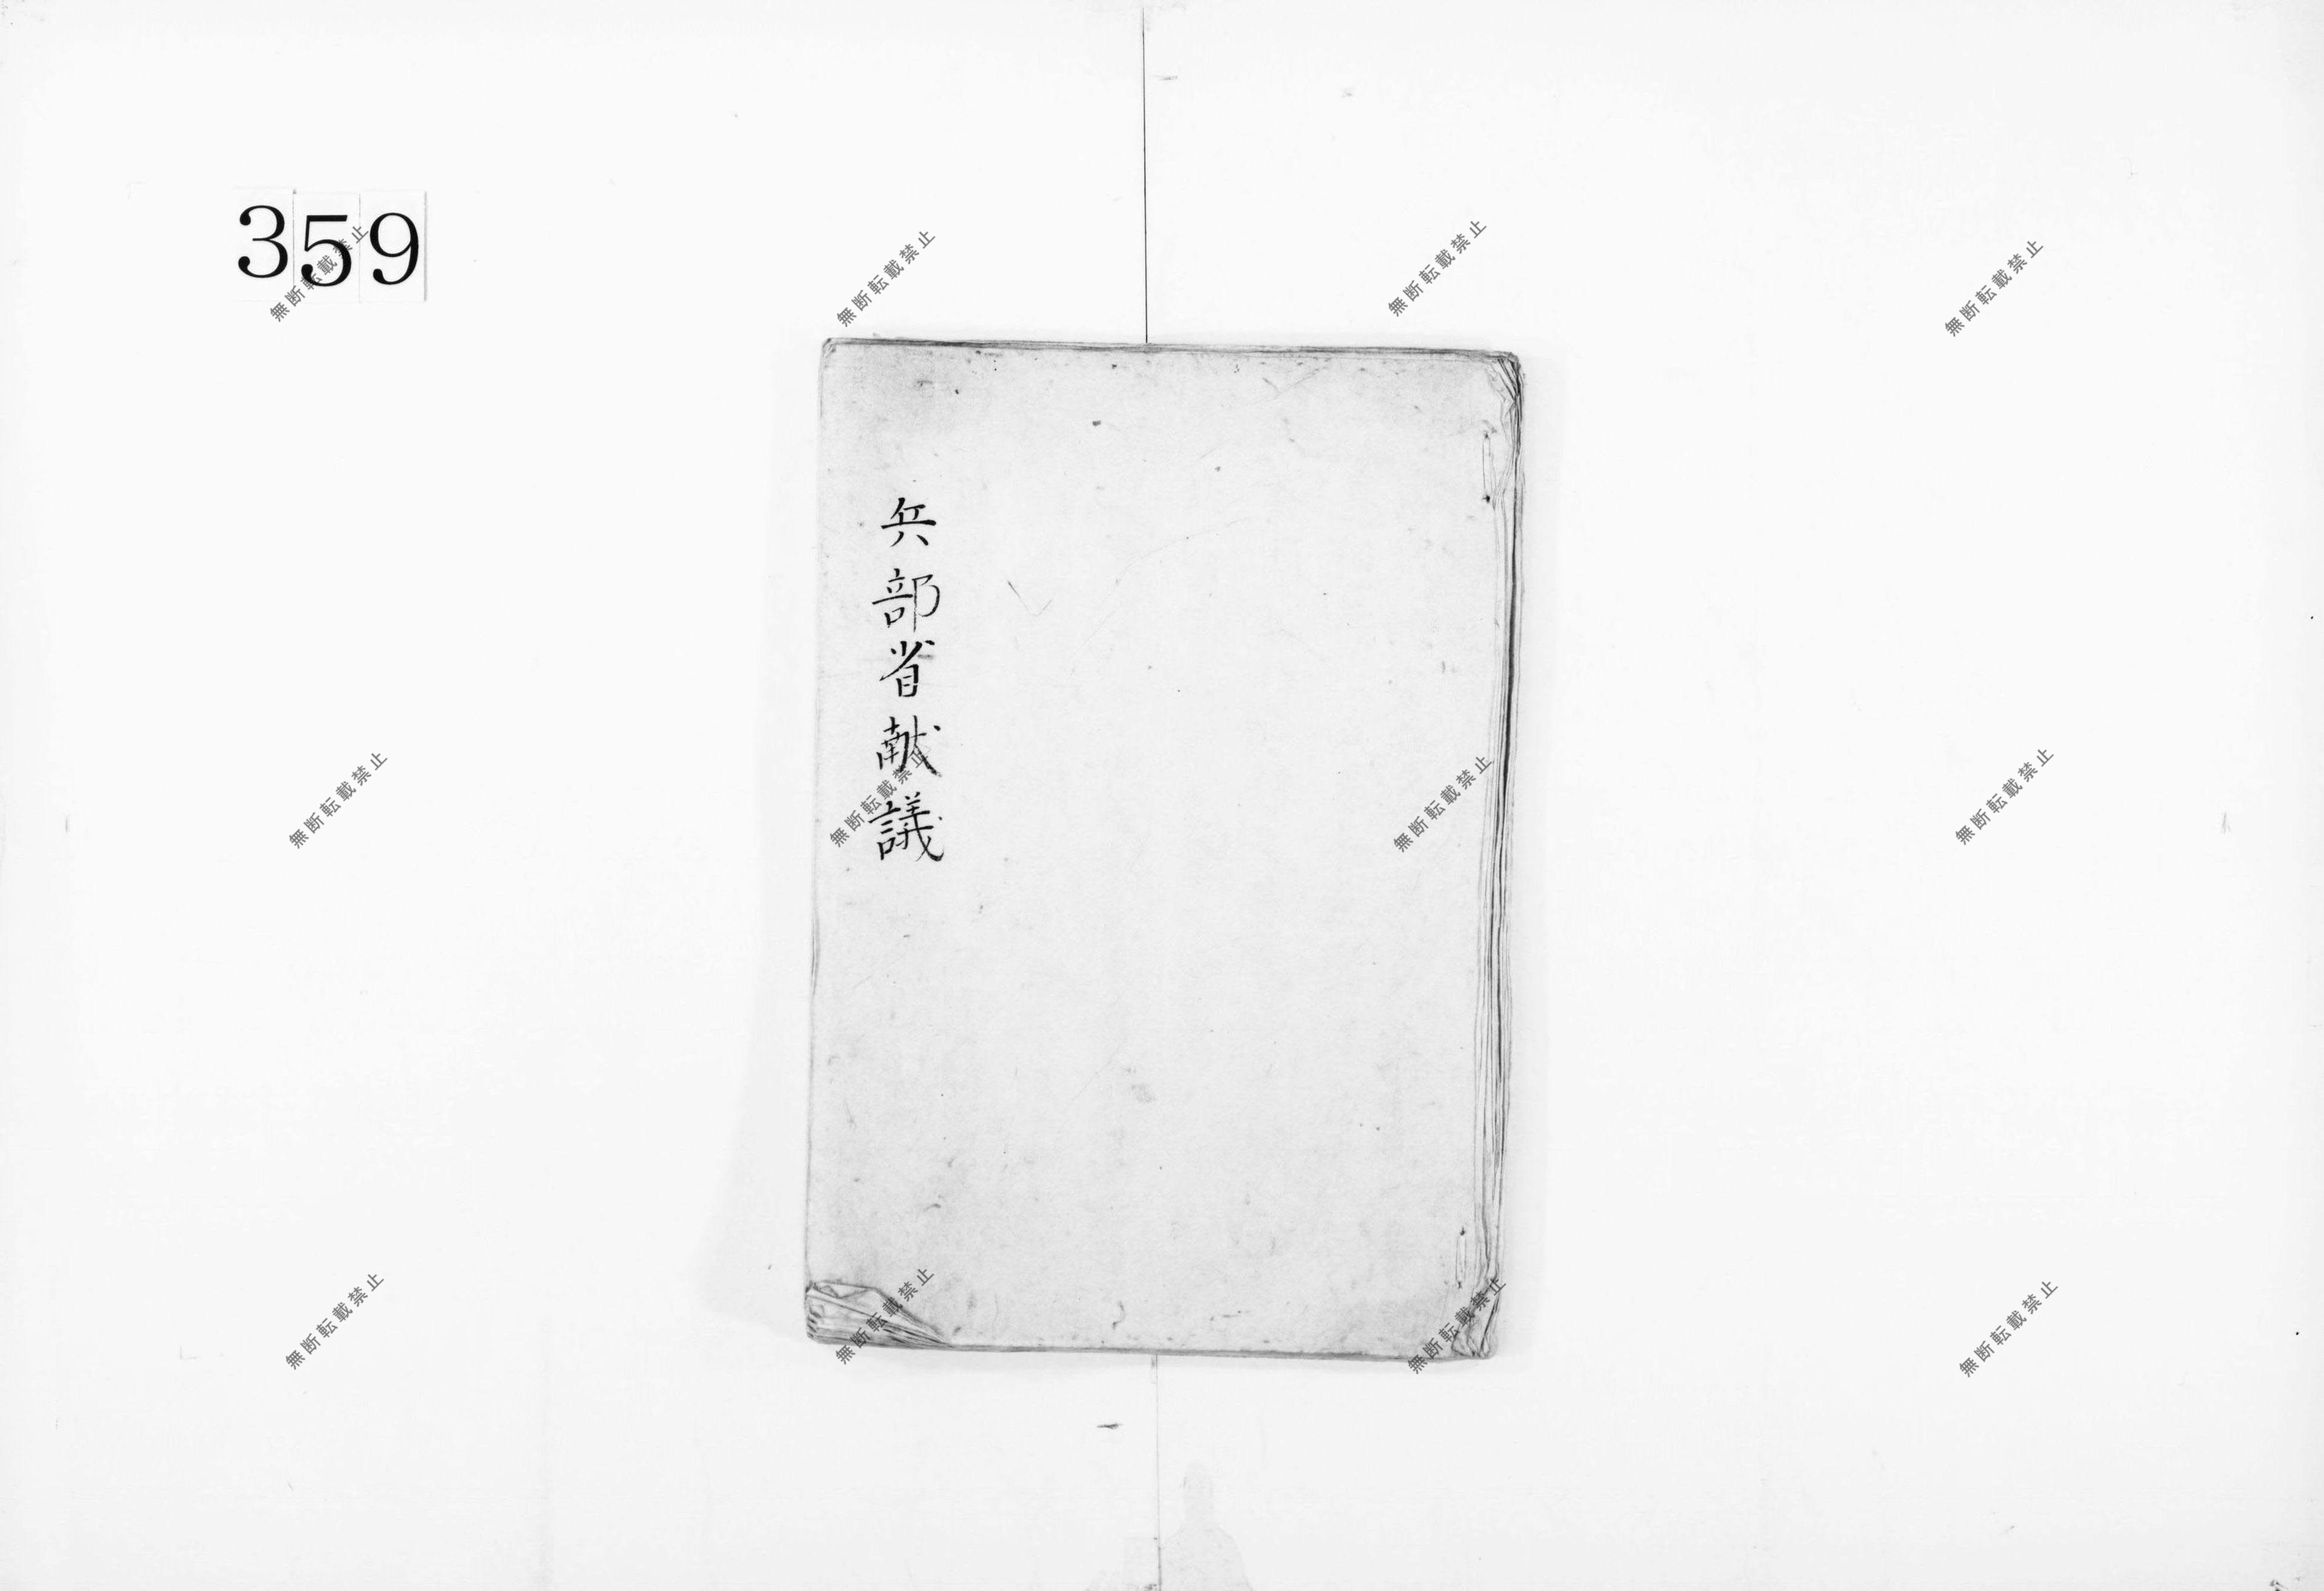 359
兵部省献議
無断転載禁止
無断転載禁止
無断転載禁止
無断転載禁止
無断転載禁止
無断転載禁止
無断転載禁止
無断転載禁止
無断転載禁止
無断転載禁止
無断転載禁止
無断転載禁止